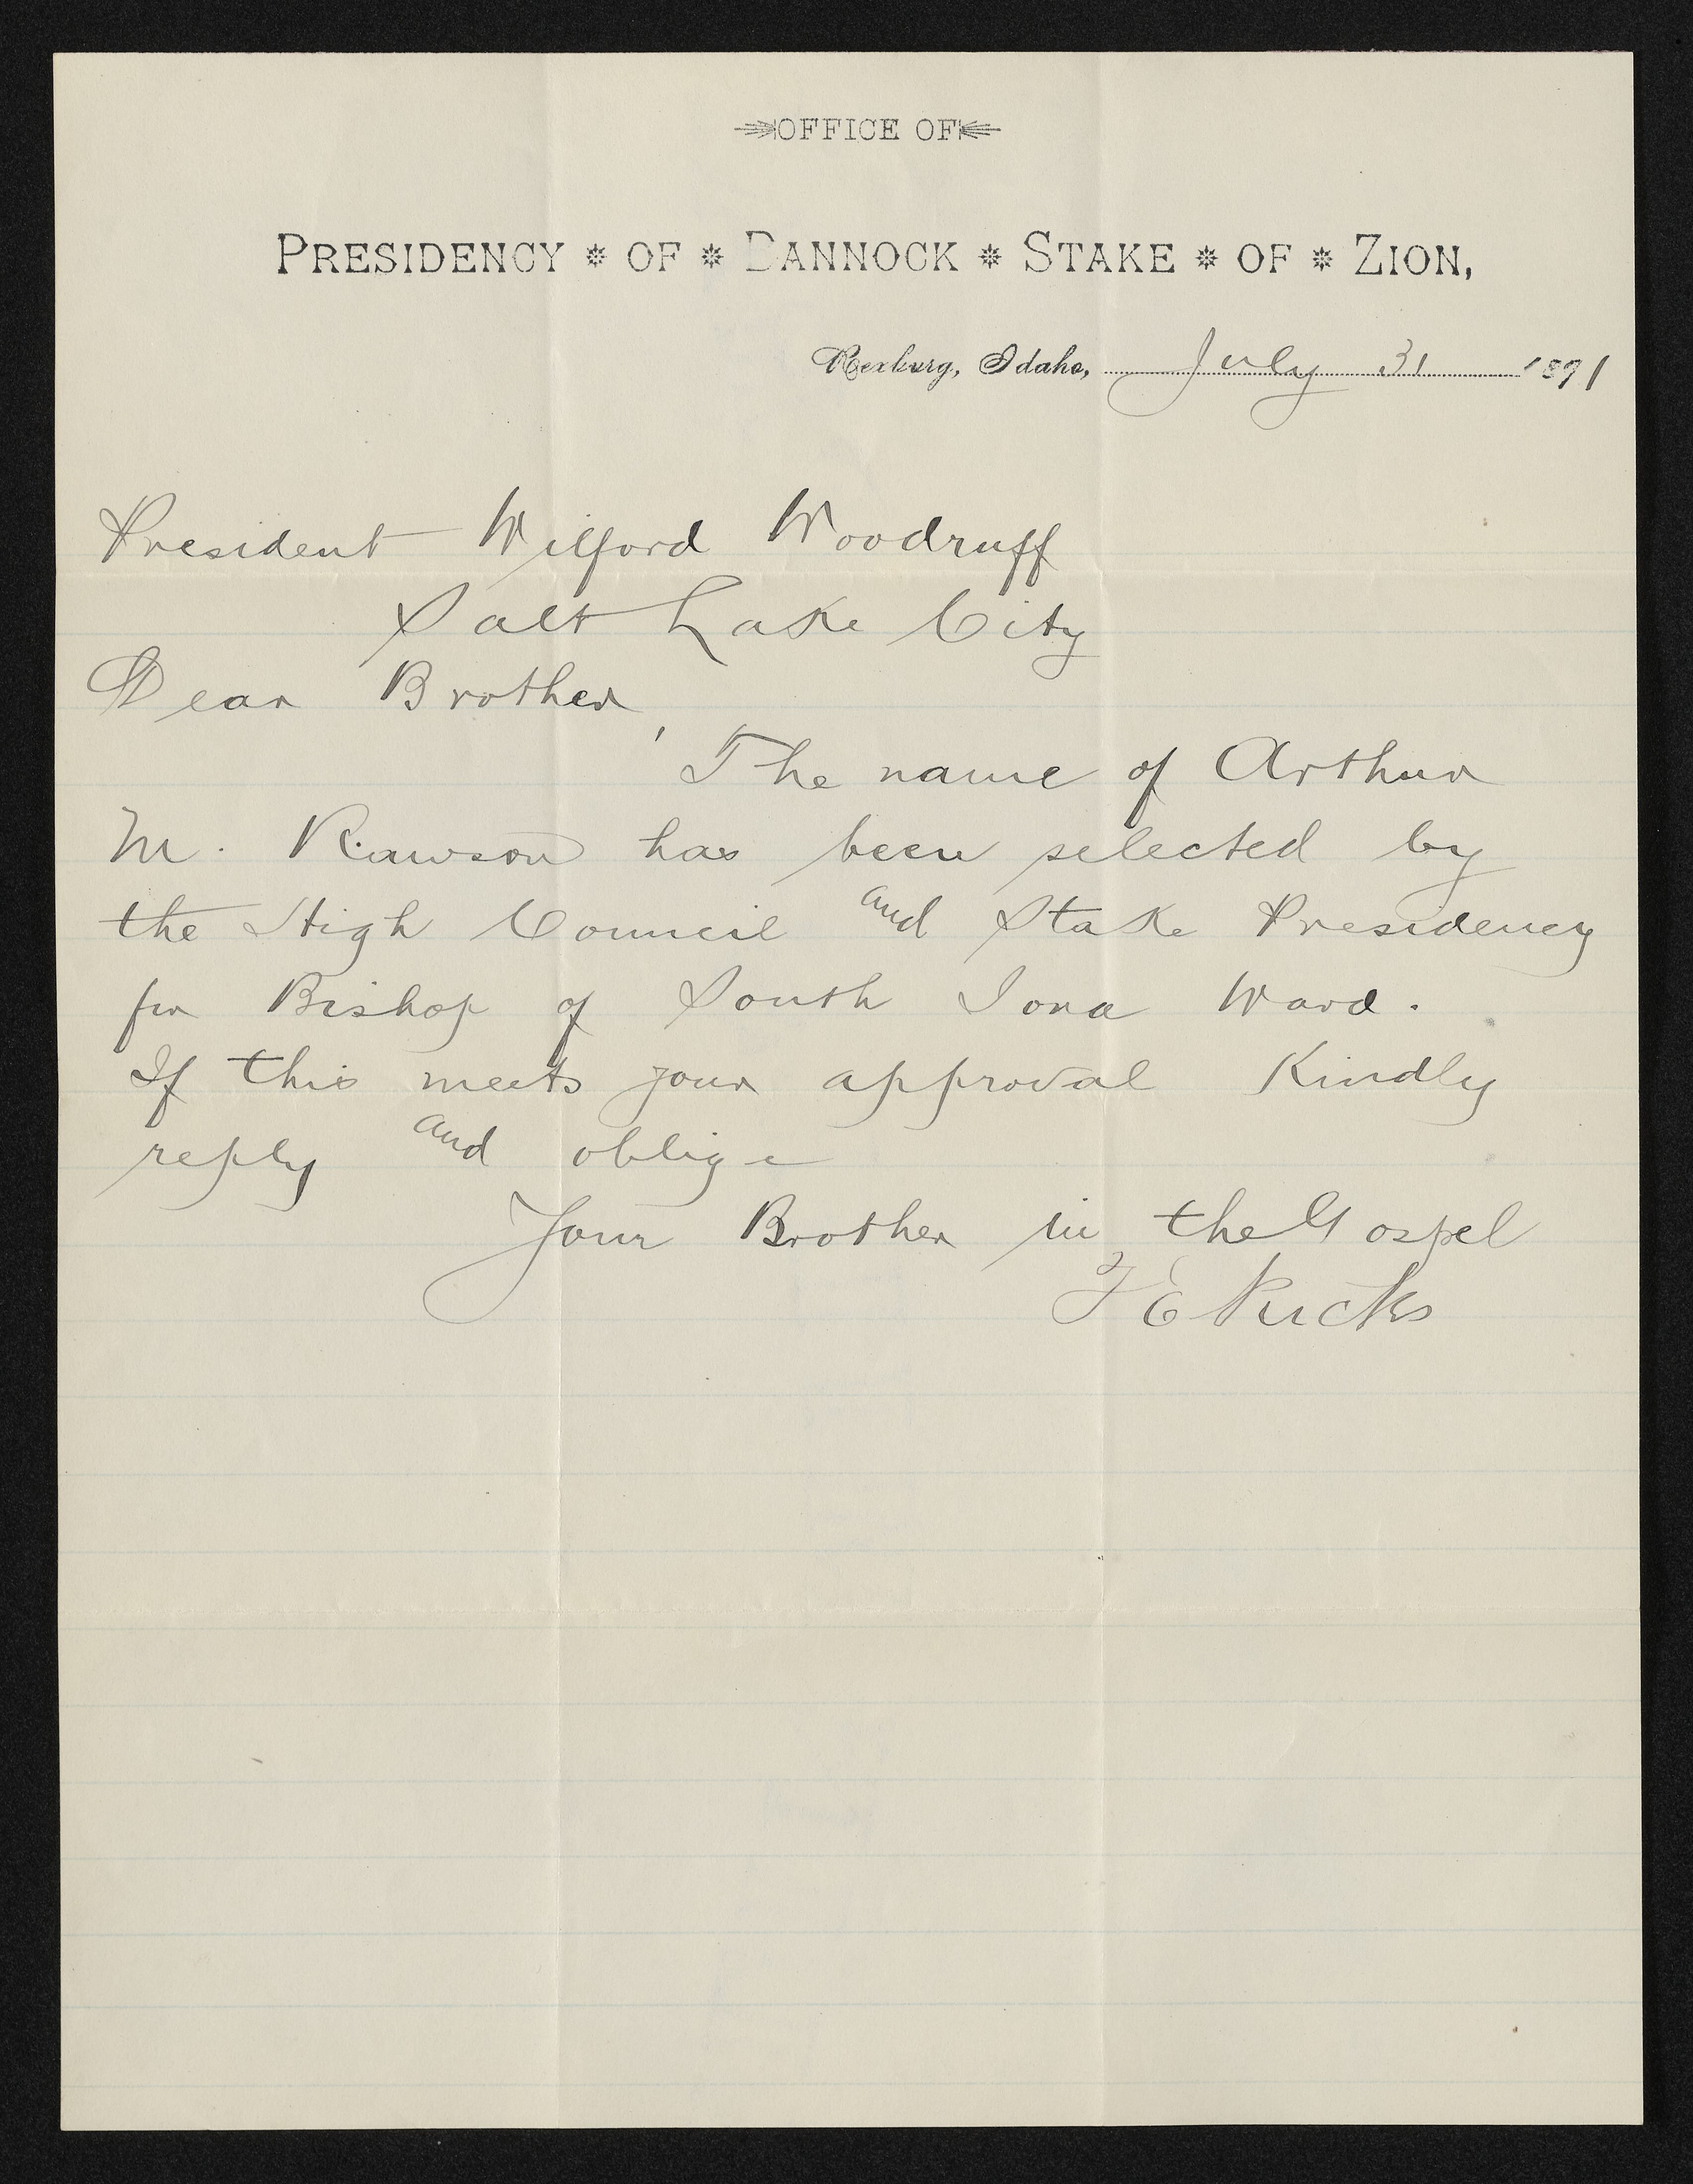 OFFICE OF
PRESIDENCY * OF * BANNOCK * STAKE * OF * ZION,
Rexburg, Idaho, July 31 1891
President Wilford Woodruff
Salt Lake City
Dear Brother,
The name of Arthur
M. Rawson has been selected by
the High Council and Stake Presidency
for Bishop of South Iona Ward.
If this meets your approval Kindly
reply and oblige
Your Brother in the Gospel
T E Ricks